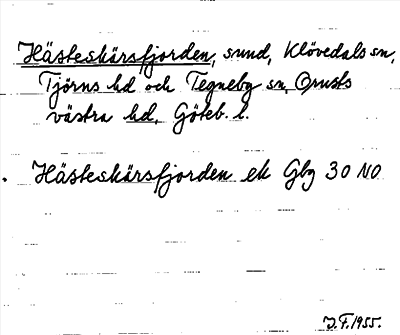 Hästeskärsfjorden, sund, Klövedals sn,
Tjörns hd och Tegneby sn, Orusts
västra hd, Göteb. l.
Hästeskärsfjorden ek Gbg 30 NO
J.F. 1955.